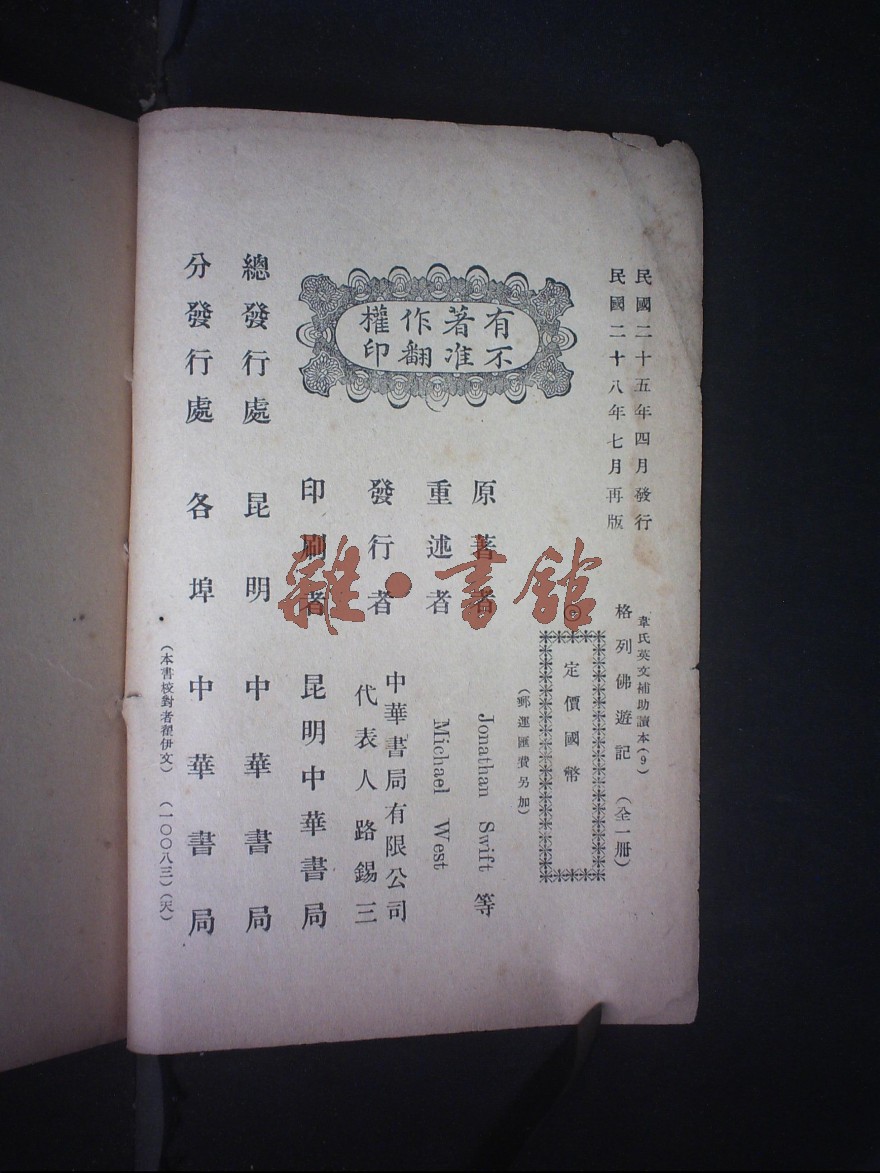 民國二十五年四月發行
民國二十八年七月再版
韋氏英文補助讀本(9)
格列佛遊記 (全一册)
定價國幣
(郵運匯費另加)
有著作權
不准翻印
原著者 Jonathan Swift 等
重述者 Michael West
發行者 中華書局有限公司
代表人路錫三
印刷者 昆明中華書局
總發行處 昆明 中華書局
分發行處 各埠 中華書局
(本書校對者翟伊文) (一〇〇八三)(天)
雜·書館